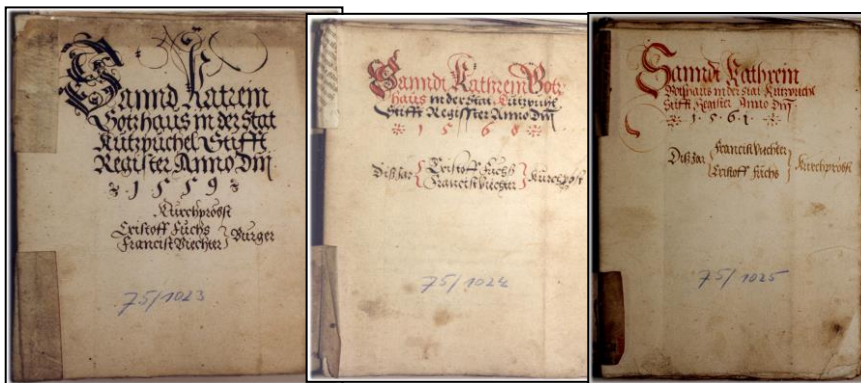 Sannd Katrein
Gotzhaus in der Stat
Kutzpuchel Stifft
Register Anno Dnj
1559
Kirchpröbst
Cristoff Fuchs
Francist Viechter
Burger
75/1023
Sanndt Kathrein Gotz-
haus in der Stat Kutzpuchl
Stifft Regisster Anno Dnj
1560
Diß Jar
Cristoff Fuchs
Francist Viechter
Kirchpröbst
75/1024
Sanndt Kathrein
Gotzhaus in der Stat Kutzpuchl
Stifft Register Anno Dnj
1561
Diß Jar
Francist Viechter
Cristoff Fuchs
Kirchpröbst
75/1025